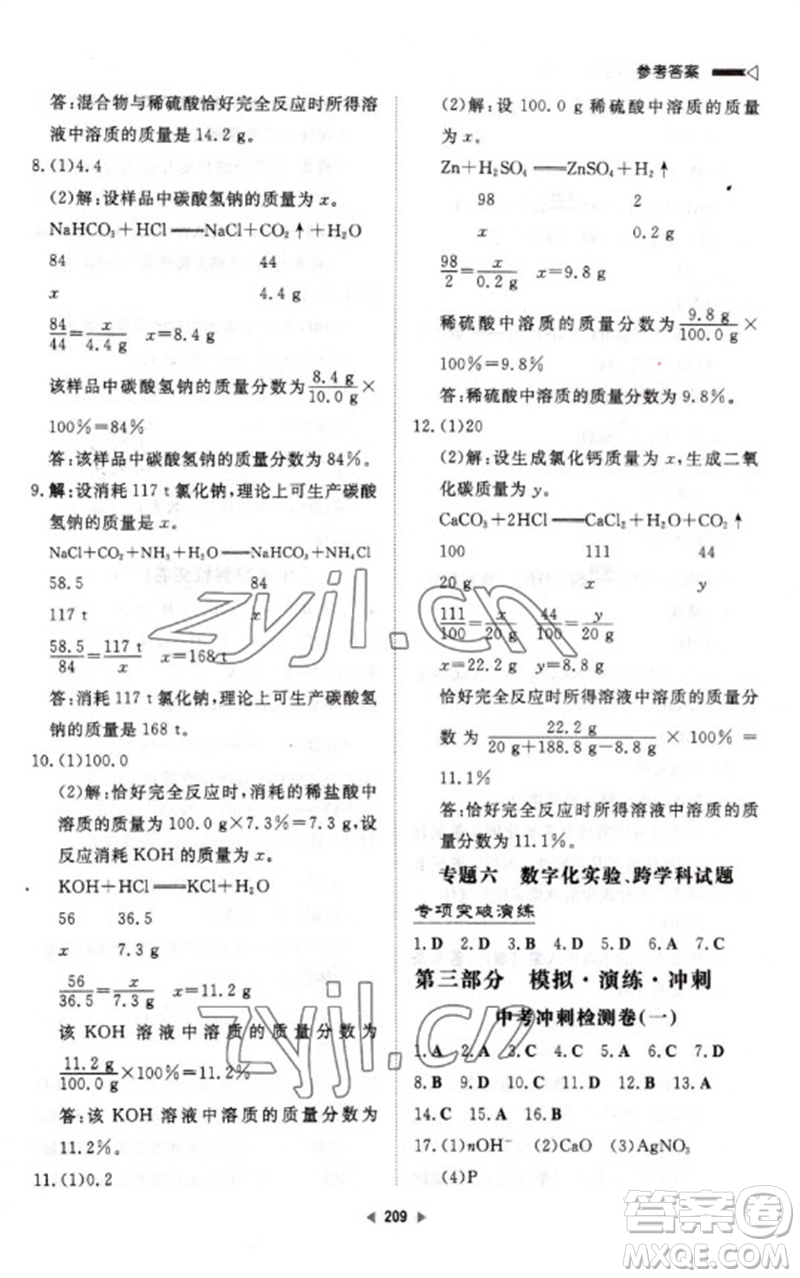 参考答案
答:混合物与稀硫酸恰好完全反应时所得溶
液中溶质的质量是 14.2 g。
8. (1)4.4
(2)解:设样品中碳酸氢钠的质量为 x。
NaHCO₃+HCl══NaCl+CO₂↑+H₂O
84 44
x 4.4 g
84/44=x/4.4 g x=8.4 g
该样品中碳酸氢钠的质量分数为 8.4 g/10.0 g ×
100%=84%
答:该样品中碳酸氢钠的质量分数为 84%。
9. 解:设消耗 117 t 氯化钠,理论上可生产碳酸
氢钠的质量是 x。
NaCl+CO₂+NH₃+H₂O══NaHCO₃+NH₄Cl
58.5 84
117 t x
58.5/84=117 t/x x=168 t
答:消耗 117 t 氯化钠,理论上可生产碳酸氢
钠的质量是 168 t。
10. (1)100.0
(2)解:恰好完全反应时,消耗的稀盐酸中
溶质的质量为 100.0 g×7.3%=7.3 g,设
反应消耗 KOH 的质量为 x。
KOH+HCl══KCl+H₂O
56 36.5
x 7.3 g
56/36.5=x/7.3 g x=11.2 g
该 KOH 溶液中溶质的质量分数为
11.2 g/100.0 g×100%=11.2%
答:该 KOH 溶液中溶质的质量分数为
11.2%。
11. (1)0.2
(2)解:设 100.0 g 稀硫酸中溶质的质量
为 x。
Zn+H₂SO₄══ZnSO₄+H₂↑
98 2
x 0.2 g
98/2=x/0.2 g x=9.8 g
稀硫酸中溶质的质量分数为 9.8 g/100.0 g×
100%=9.8%
答:稀硫酸中溶质的质量分数为 9.8%。
12. (1)20
(2)解:设生成氯化钙质量为 x,生成二氧
化碳质量为 y。
CaCO₃+2HCl══CaCl₂+H₂O+CO₂↑
100 111 44
20 g x y
111/100=x/20 g 44/100=y/20 g
x=22.2 g y=8.8 g
恰好完全反应时所得溶液中溶质的质量分
数为 22.2 g/20 g+188.8 g−8.8 g ×100%=
11.1%
答:恰好完全反应时所得溶液中溶质的质
量分数为 11.1%。
专题六 数字化实验、跨学科试题
专项突破演练
1. D 2. D 3. B 4. D 5. D 6. A 7. C
第三部分 模拟·演练·冲刺
中考冲刺检测卷(一)
1. A 2. A 3. C 4. C 5. C 6. C 7. D
8. B 9. D 10. D 11. C 12. D 13. A
14. C 15. A 16. B
17. (1)nOH⁻ (2)CaO (3)AgNO₃
(4)P
209
zyjl.cn
zyjl.cn
答案圈
MXQE.COM